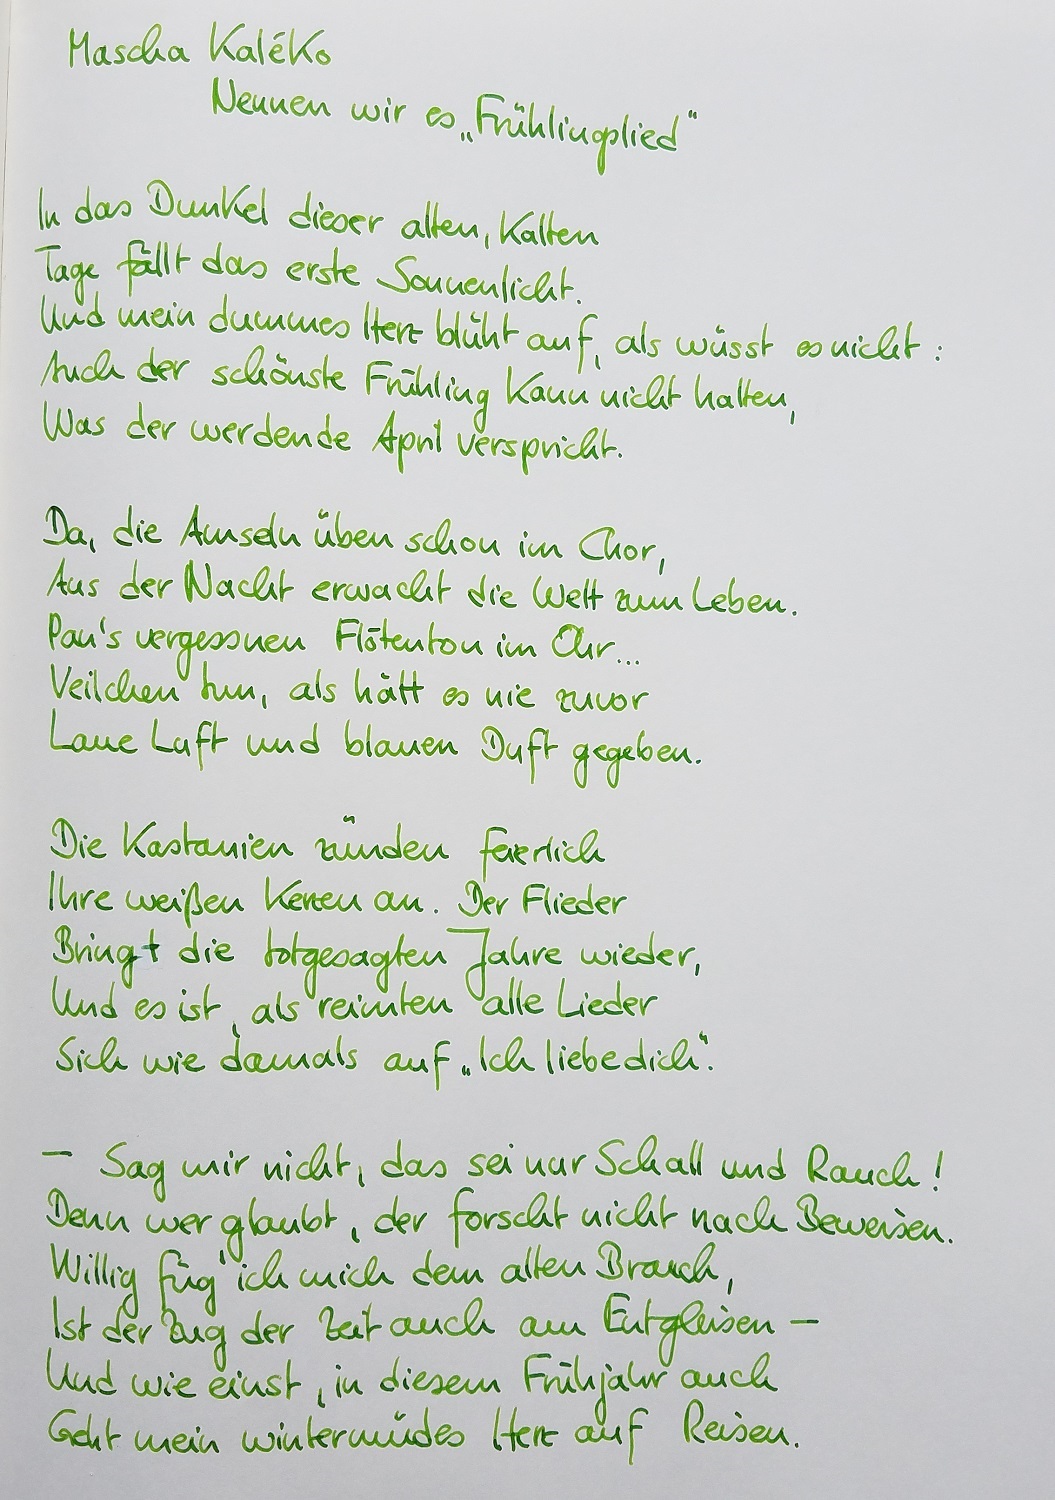 Mascha Kaléko
Nennen wir es „Frühlingslied"
In das Dunkel dieser alten, kalten
Tage fällt das erste Sonnenlicht.
Und mein dummes Herz blüht auf, als wüsst es nicht:
Auch der schönste Frühling kann nicht halten,
Was der werdende April verspricht.
Da, die Amseln üben schon im Chor,
Aus der Nacht erwacht die Welt zum Leben.
Pan's vergessnen Flötenton im Ohr...
Veilchen tun, als hätt es nie zuvor
Laue Luft und blauen Duft gegeben.
Die Kastanien zünden feierlich
Ihre weißen Kerzen an. Der Flieder
Bringt die totgesagten Jahre wieder,
Und es ist, als reimten alle Lieder
Sich wie damals auf „Ich liebe dich".
– Sag mir nicht, das sei nur Schall und Rauch!
Denn wer glaubt, der forscht nicht nach Beweisen.
Willig füg' ich mich dem alten Brauch,
Ist der Zug der Zeit auch am Entgleisen –
Und wie einst, in diesem Frühjahr auch
Geht mein wintermüdes Herz auf Reisen.